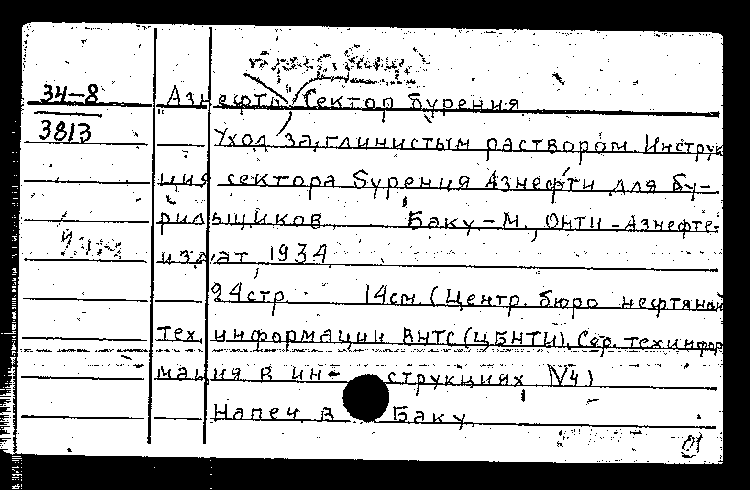 34-8 Азнефть Сектор бурения
3813 Уход за глинистым раствором. Инструк
ция сектора бурения Азнефти для бу-
рильщиков Баку-М., ОНТИ-Азнефте-
издат, 1934
24стр. 14см. (Центр. бюро нефтяной
тех. информации ВНТС (ЦБНТИ). Сер. техинфор
мация в ин- струкциях, №4)
Напеч. в Баку